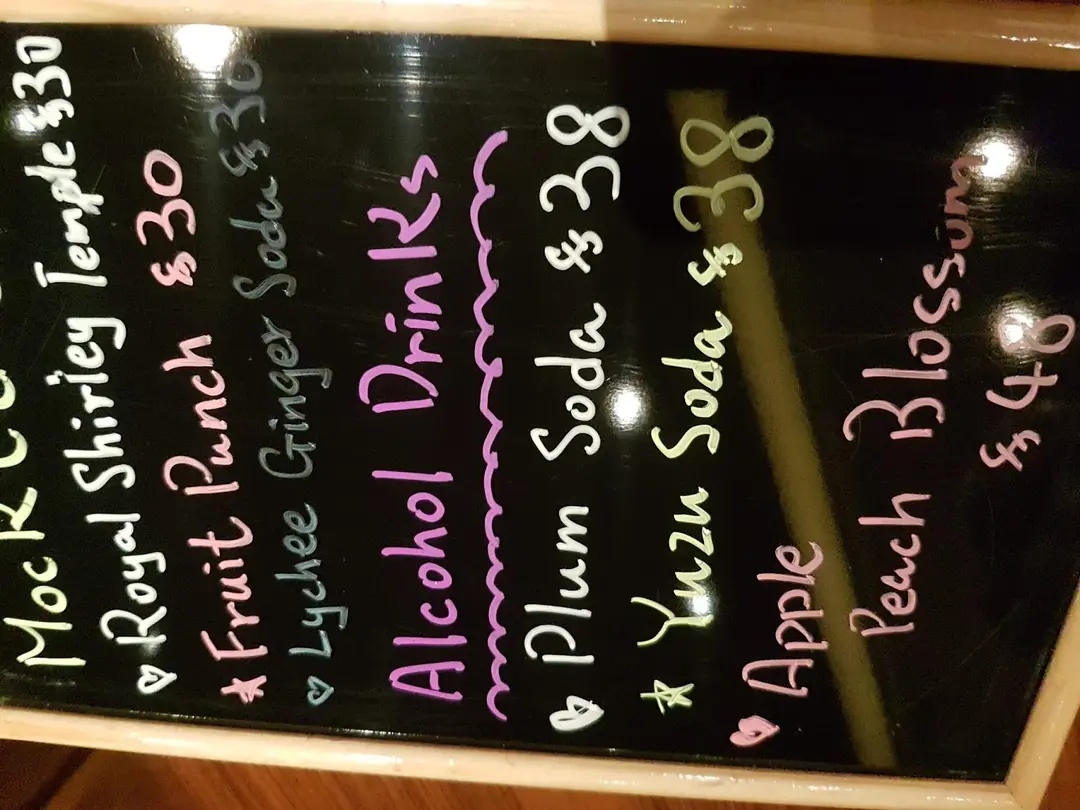 Royal Shirley Temple $30
Fruit Punch $30
Lychee Ginger Soda $30
Alcohol Drinks
Plum Soda $38
Yuzu Soda $38
Apple
Peach Blossum
$48